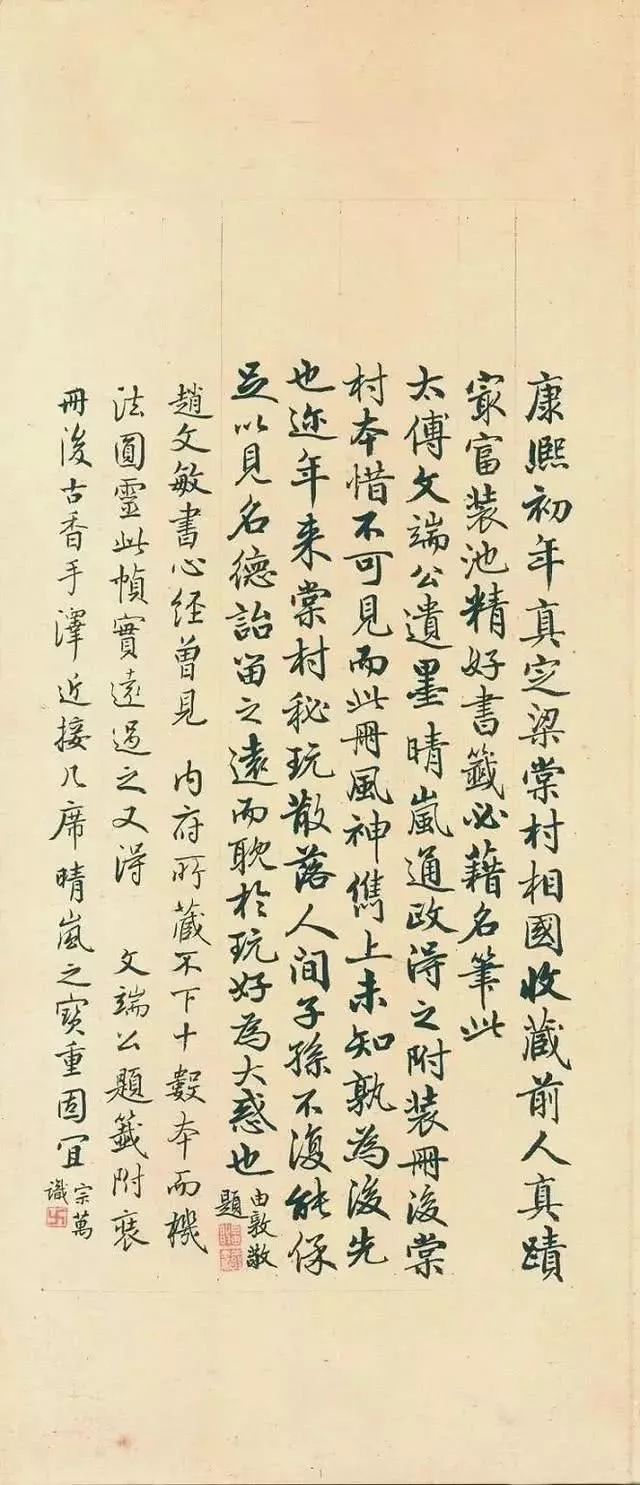 康熙初年真定梁棠村相國收藏前人真蹟
㝡富装池精好書籤必藉名筆此
太傅文端公遺墨晴嵐通政得之附装冊後棠
村本惜不可見而此冊風神儁上未知孰為後先
也迩年来棠村秘玩散落人间子孫不復能保
足以見名德詒留之遠而耽於玩好為大惑也
由敦敬
題
趙文敏書心經曾見 内府所藏不下十數本而機
法圓靈此幀實遠過之又得 文端公題籤附裝
冊後古香手澤近接几席晴嵐之寶重固宜
宗萬
識